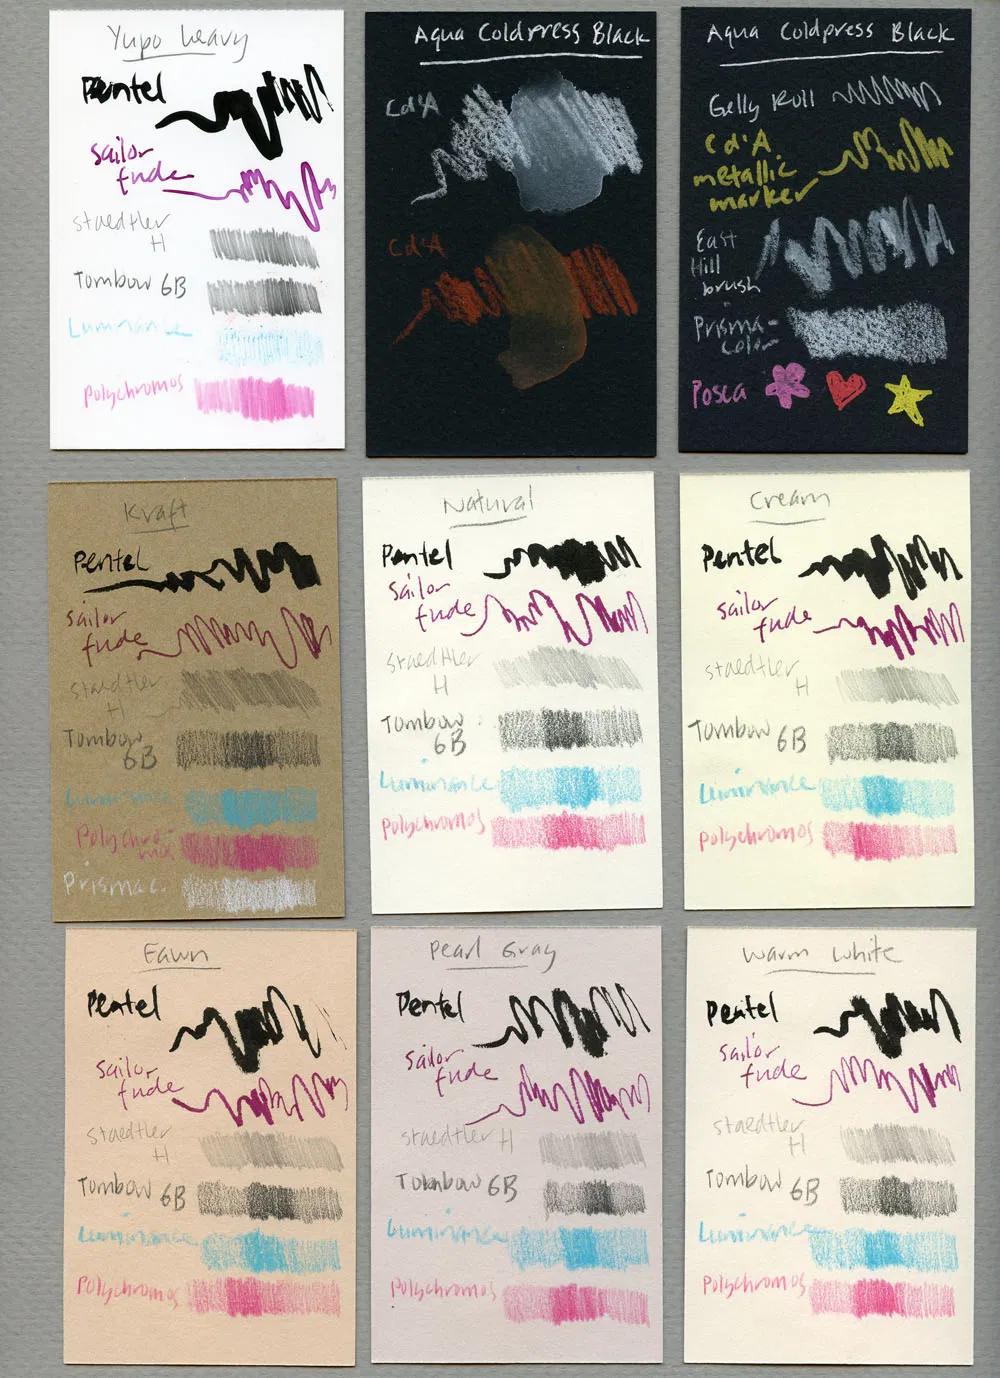 Yupo Heavy
Pentel
sailor
fude
staedtler
H
Tombow 6B
Luminance
Polychromos
Aqua Coldpress Black
Cd'A
Cd'A
Aqua Coldpress Black
Gelly Roll
Cd'A
metallic
marker
East
Hill
brush
Prisma-
color
Posca
Kraft
Pentel
sailor
fude
staedtler
H
Tombow
6B
Luminance
Polychro-
mos
Prismac.
Natural
Pentel
sailor
fude
staedtler
H
Tombow
6B
Luminance
Polychromos
Cream
Pentel
sailor
fude
staedtler
H
Tombow 6B
Luminance
Polychromos
Fawn
Pentel
sailor
fude
staedtler
H
Tombow 6B
Luminance
Polychromos
Pearl Gray
Pentel
sailor
fude
staedtler H
Tombow 6B
Luminance
Polychromos
Warm White
Pentel
sailor
fude
staedtler
H
Tombow 6B
Luminance
Polychromos